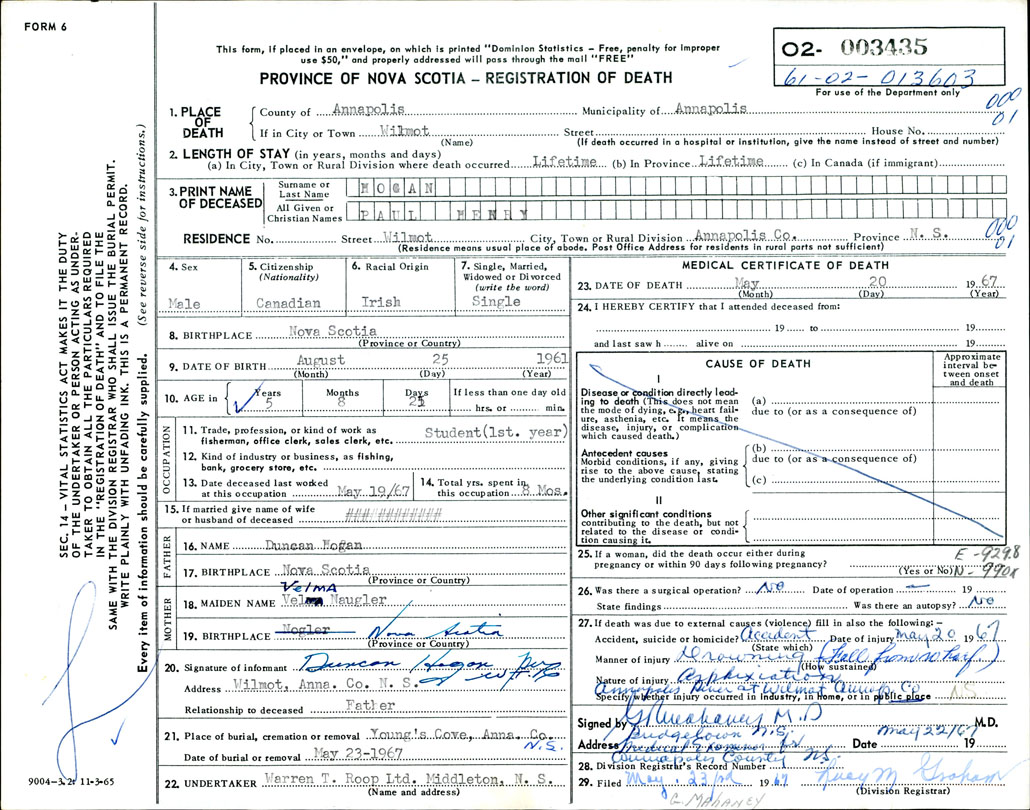 FORM 6
This form, if placed in an envelope, on which is printed "Dominion Statistics – Free, penalty for improper
use $50," and properly addressed will pass through the mail "FREE"
PROVINCE OF NOVA SCOTIA – REGISTRATION OF DEATH
02- 003435
61-02-013603
For use of the Department only
000
01
1. PLACE OF DEATH
County of Annapolis Municipality of Annapolis
If in City or Town Wilmot Street House No.
(Name) (If death occurred in a hospital or institution, give the name instead of street and number)
2. LENGTH OF STAY (in years, months and days)
(a) In City, Town or Rural Division where death occurred Lifetime (b) In Province Lifetime (c) In Canada (if immigrant)
3. PRINT NAME OF DECEASED
Surname or Last Name HOGAN
All Given or Christian Names PAUL HENRY
000
01
RESIDENCE No. Street Wilmot City, Town or Rural Division Annapolis Co. Province N. S.
(Residence means usual place of abode. Post Office Address for residents in rural parts not sufficient)
4. Sex
Male
5. Citizenship
(Nationality)
Canadian
6. Racial Origin
Irish
7. Single, Married,
Widowed or Divorced
(write the word)
Single
8. BIRTHPLACE Nova Scotia
(Province or Country)
9. DATE OF BIRTH August 25 1961
(Month) (Day) (Year)
10. AGE in
Years
5
Months
8
Days
If less than one day old
hrs. or min.
OCCUPATION
11. Trade, profession, or kind of work as
fisherman, office clerk, sales clerk, etc. Student(1st. year)
12. Kind of industry or business, as fishing,
bank, grocery store, etc.
13. Date deceased last worked
at this occupation May 19/67
14. Total yrs. spent in
this occupation 8 Mos.
15. If married give name of wife
or husband of deceased ### #########
FATHER
16. NAME Duncan Hogan
17. BIRTHPLACE Nova Scotia
(Province or Country)
MOTHER
VELMA
18. MAIDEN NAME Velma Naugler
19. BIRTHPLACE Nogler Nova Scotia
(Province or Country)
20. Signature of informant Duncan Hogan
Address Wilmot, Anna. Co. N. S.
Relationship to deceased Father
21. Place of burial, cremation or removal Young's Cove, Anna. Co.
N.S.
Date of burial or removal May 23-1967
22. UNDERTAKER Warren T. Roop Ltd. Middleton, N. S.
(Name and address)
MEDICAL CERTIFICATE OF DEATH
23. DATE OF DEATH May 20 1967
(Month) (Day) (Year)
24. I HEREBY CERTIFY that I attended deceased from:
19 to 19
and last saw h alive on 19
CAUSE OF DEATH
Approximate
interval be-
tween onset
and death
I
Disease or condition directly lead-
ing to death (This does not mean
the mode of dying, e.g., heart fail-
ure, asthenia, etc. It means the
disease, injury, or complication
which caused death.)
(a)
due to (or as a consequence of)
Antecedent causes
Morbid conditions, if any, giving
rise to the above cause, stating
the underlying condition last.
(b)
due to (or as a consequence of)
(c)
II
Other significant conditions
contributing to the death, but not
related to the disease or condi-
tion causing it.
25. If a woman, did the death occur either during
pregnancy or within 90 days following pregnancy?
(Yes or No)
E-929.8
N-990X
26. Was there a surgical operation? No Date of operation – 19
State findings Was there an autopsy? No
27. If death was due to external causes (violence) fill in also the following:–
Accident, suicide or homicide? Accident Date of injury May 20 1967
(State which)
Manner of injury Drowning (Fall from wharf)
(How sustained)
Nature of injury Asphixiation
Annapolis River at Wilmot Annap. Co NS
Specify whether injury occurred in Industry, in Home, or in public place
Signed by M.D M.D.
Bridgetown N.S.
Address Date May 22/67 19
Annapolis County NS
28. Division Registrar's Record Number
29. Filed May 23rd 1967 Graham
(Division Registrar)
G. MAHANEY
SEC. 14 – VITAL STATISTICS ACT MAKES IT THE DUTY
OF THE UNDERTAKER OR PERSON ACTING AS UNDER-
TAKER TO OBTAIN ALL THE PARTICULARS REQUIRED
IN THE "REGISTRATION OF DEATH" AND TO FILE THE
SAME WITH THE DIVISION REGISTRAR WHO SHALL ISSUE THE BURIAL PERMIT.
WRITE PLAINLY WITH UNFADING INK. THIS IS A PERMANENT RECORD.
Every item of information should be carefully supplied. (See reverse side for instructions.)
9004-3.2f 11-3-65